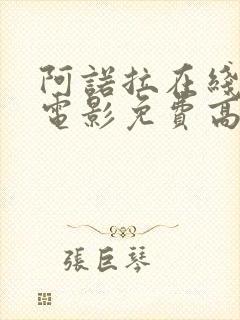 阿諾拉在綫
電影免費高
張巨琴